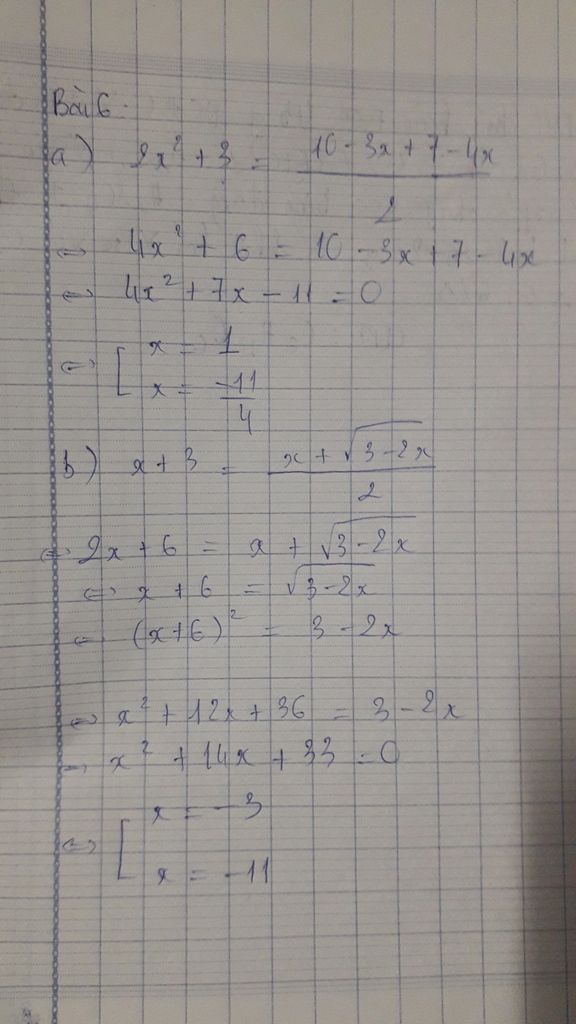 Bài 6.
a) 2x² + 3 = (10 - 3x + 7 - 4x)/2
⇔ 4x² + 6 = 10 - 3x + 7 - 4x
⇔ 4x² + 7x - 11 = 0
⇔ [ x = 1
x = -11/4
b) x + 3 = (x + √(3 - 2x))/2
⇔ 2x + 6 = x + √(3 - 2x)
⇔ x + 6 = √(3 - 2x)
⇔ (x+6)² = 3 - 2x
⇔ x² + 12x + 36 = 3 - 2x
⇔ x² + 14x + 33 = 0
⇔ [ x = -3
x = -11